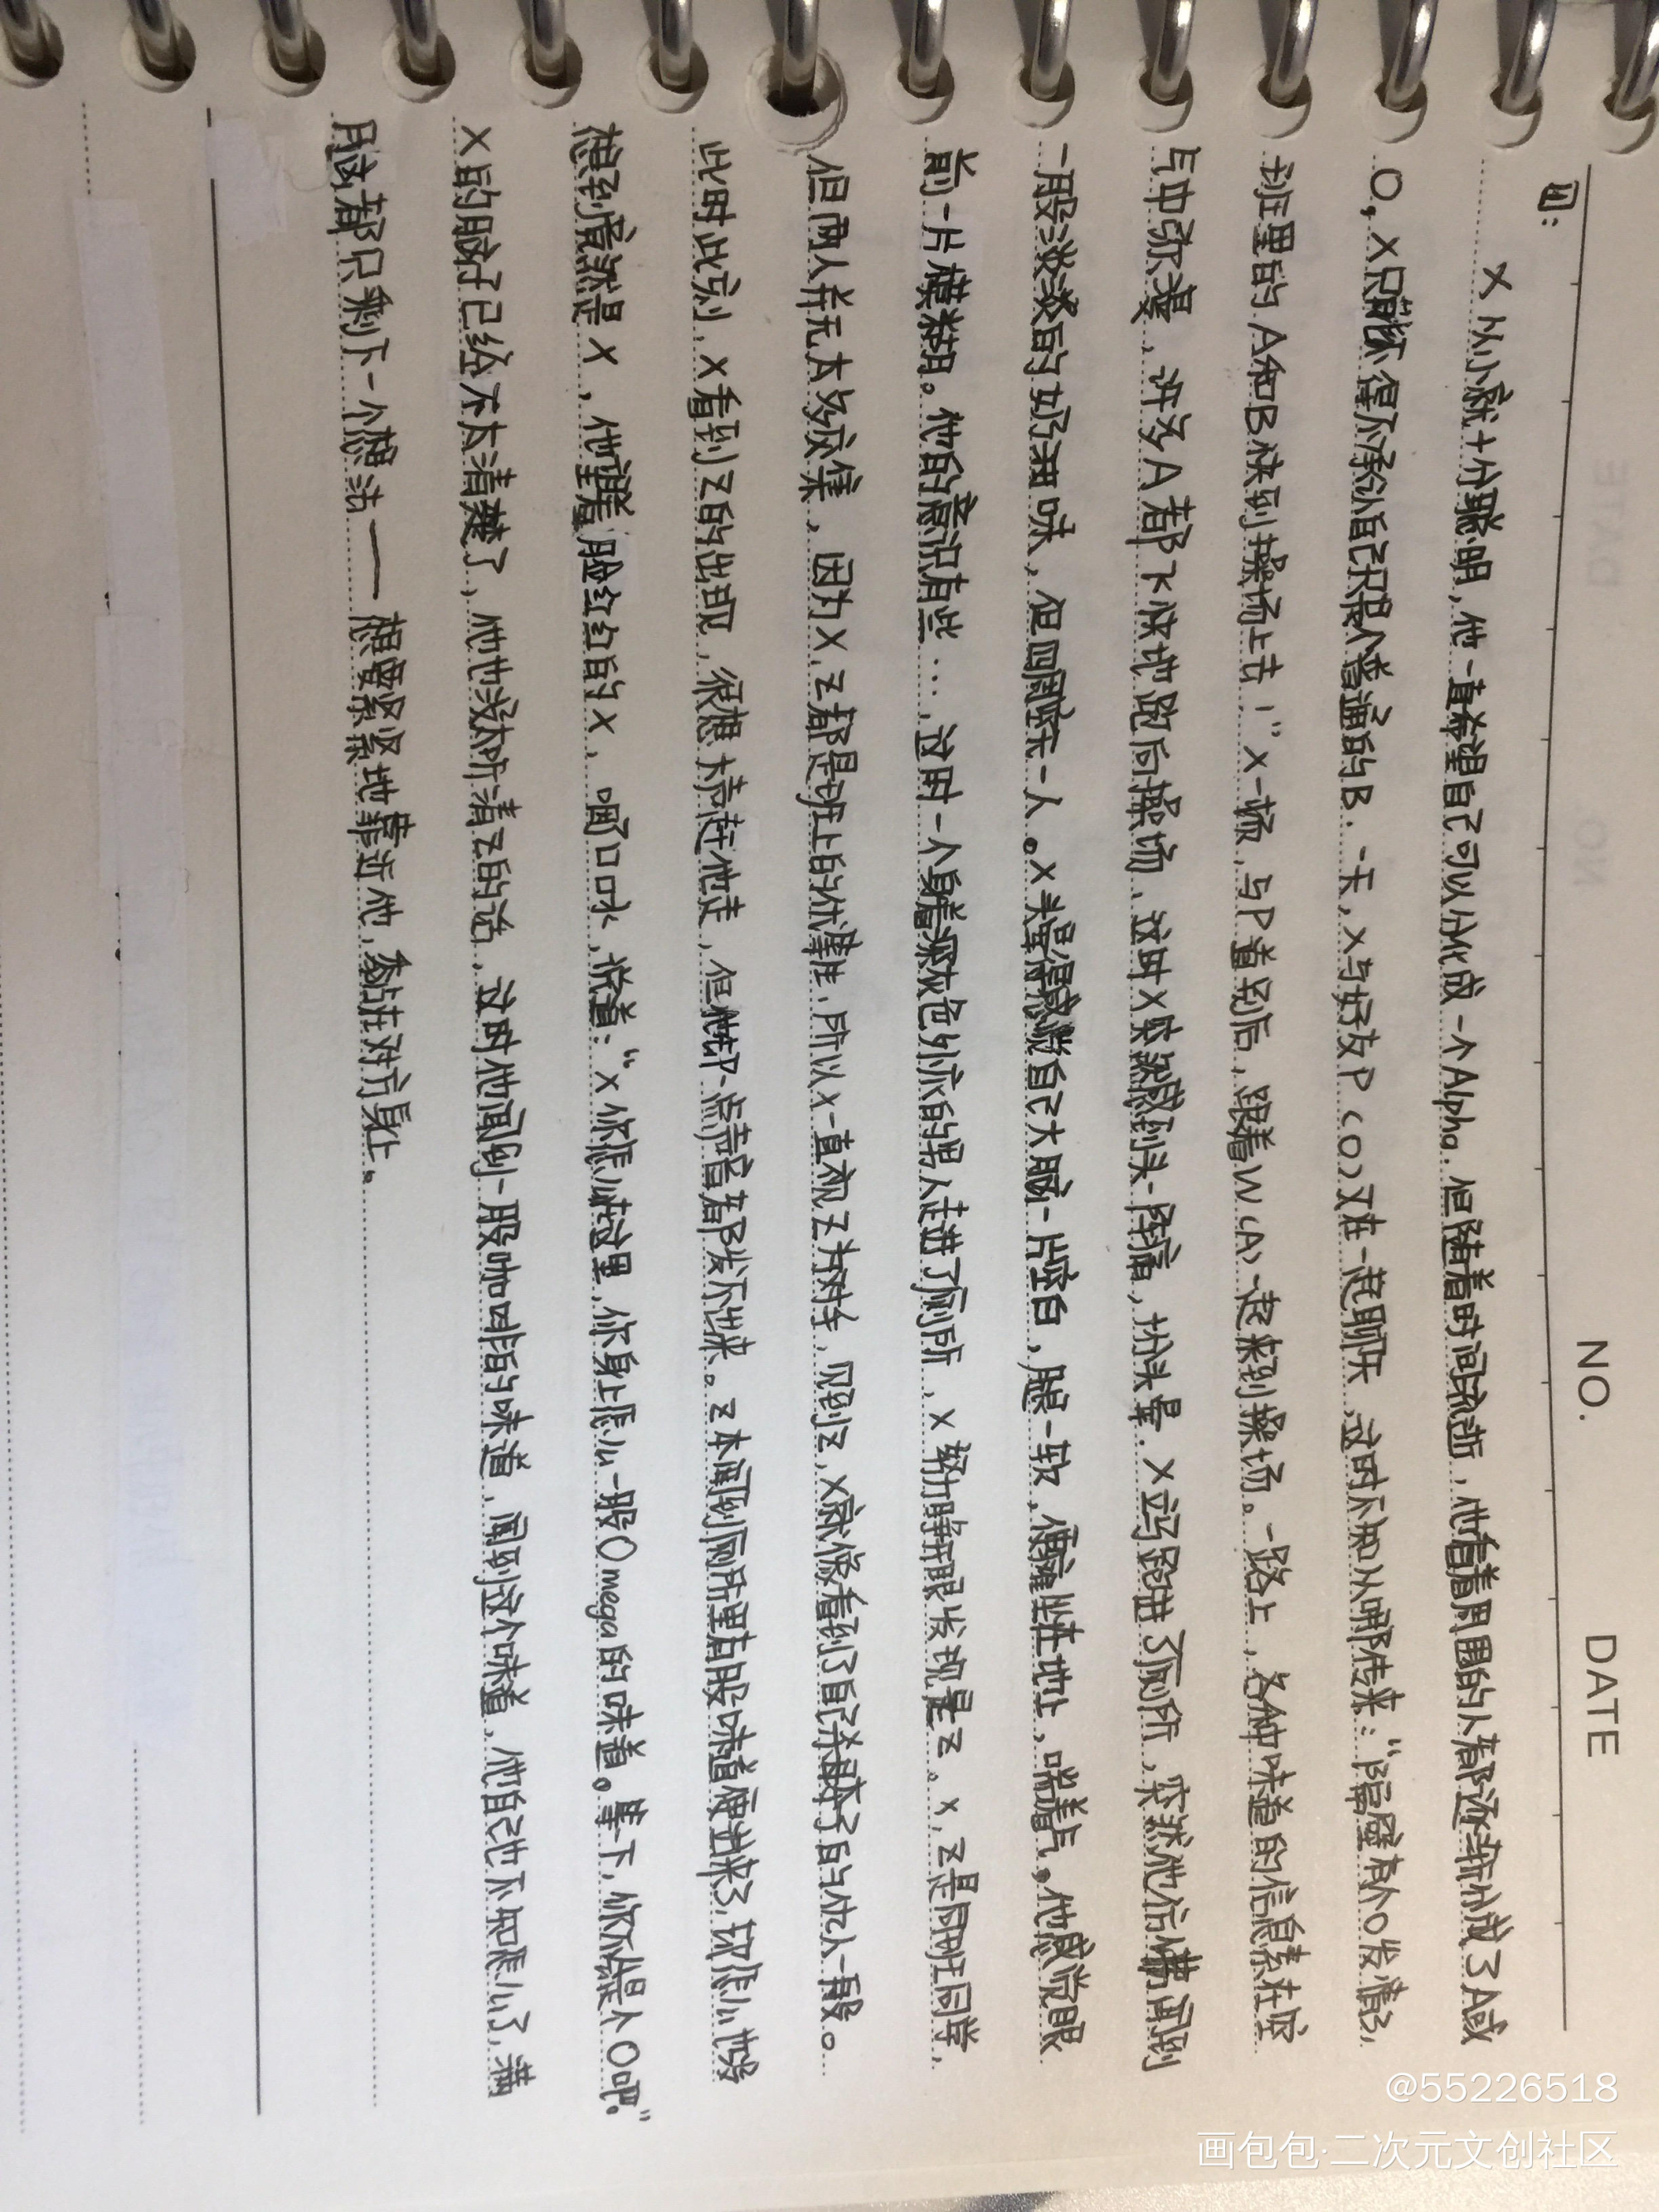 NO.
DATE
四：
X从小就十分聪明，他一直希望自己可以分化成一个Alpha．但随着时间流逝，他看着周围的人都逐渐分成了A或
O，X只能不得不承认自己只是个普通的B．一天，X与好友P（O）又在一起聊天，这时不知从哪传来：“隔壁有个O发情了，
班里的A和B快到操场上去！”X一顿，与P道别后，跟着W（A）一起来到操场。一路上，各种味道的信息素在空
气中弥漫，许多A都飞快地跑向操场，这时X突然感到头一阵痛，扮头晕．X立马跑进了厕所，突然他仿佛闻到
一股淡淡的奶油味，但四周空无一人。X头晕得感觉自己大脑一片空白，腿一软，便瘫坐在地上，喘着气。他感觉眼
前一片模糊。他的意识有些…，这时一个身着深灰色外衣的男人走进了厕所，X努力睁开眼发现是Z。X，Z是同班同学，
但两人并无太多交集，因为X，Z都是班上的优等生，所以X一直视Z为对手，见到Z，X就像看到了自己杀母夺子的仇人一般。
此时此刻，X看到Z的出现，很想大声赶他走，但他却一点声音都发不出来。Z本闻到厕所里有股味道便进来了，球队他没
想到竟然是X，他望着脸红红的X，咽口口水，说着：“X你怎么在这里，你身上怎么一股Omega的味道。等下，你不会是个O吧．”
X的脑子已经不太清楚了，他也没太听清Z的话，这时他闻到一股咖啡的味道，闻到这个味道，他自己也不知怎么了，满
脑都只剩下一个想法——想要紧紧地靠近他，黏在对方身上。
@55226518
画包包·二次元文创社区